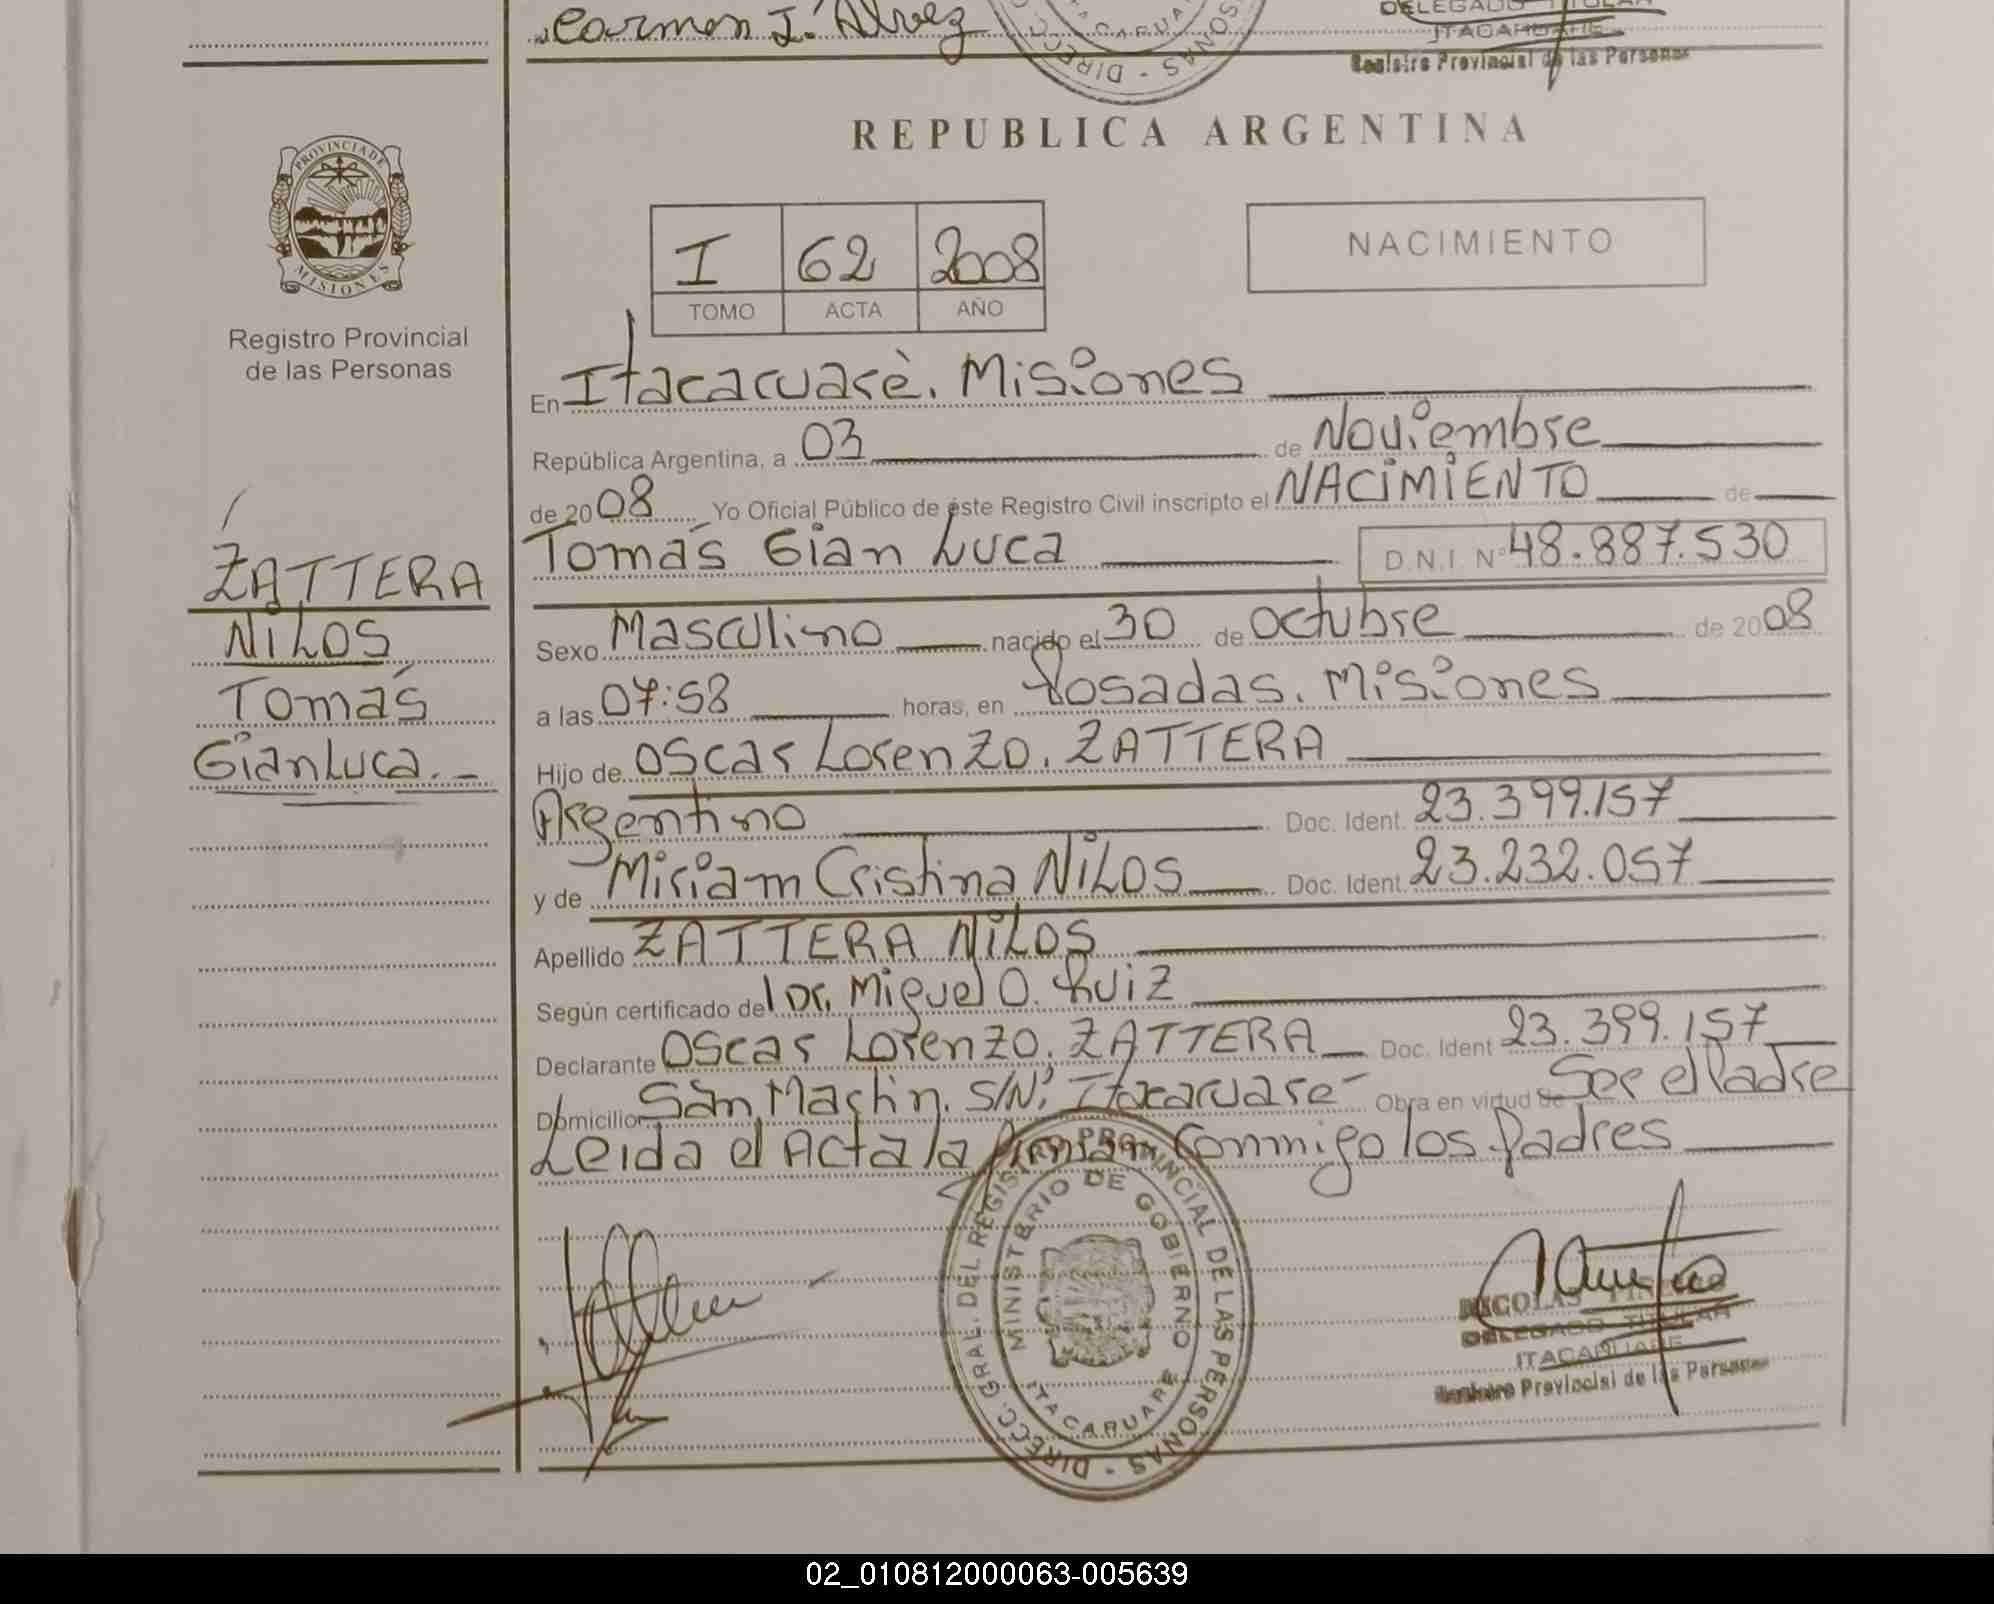 Carmen I. Alvez
DIRECC
DELEGADO TITULAR
ITACARUARE
Registro Provincial de las Personas
REPUBLICA ARGENTINA
PROVINCIA DE
MISIONES
Registro Provincial
de las Personas
I 62 2008
TOMO ACTA AÑO
NACIMIENTO
En Itacaruarè. Misiones
República Argentina, a 03 de Noviembre
de 2008 Yo Oficial Público de éste Registro Civil inscripto el NACIMIENTO de
Tomás Gian Luca D.N.I. Nº 48.887.530
ZATTERA
NiLOS
Tomás
GianLuca.-
Sexo Masculino nacido el 30 de octubre de 2008
a las 07:58 horas, en Posadas. Misiones
Hijo de Oscar Lorenzo. ZATTERA
Argentino Doc. Ident. 23.399.157
y de Miriam Cristina NiLOS Doc. Ident. 23.232.057
Apellido ZATTERA NiLOS
Según certificado del Dr. Miguel O. Ruiz
Declarante Oscar Lorenzo. ZATTERA Doc. Ident 23.399.157
Domicilio San Martin. S/Nº Itacaruare Obra en virtud de Ser el Padre
Leida el Acta la firman Conmigo los Padres
DIRECC. GRAL. DEL REGISTRO PROVINCIAL DE LAS PERSONAS
MINISTERIO DE GOBIERNO
ITACARUARE
DELEGADO TITULAR
ITACARUARE
Registro Provincial de las Personas
02_010812000063-005639